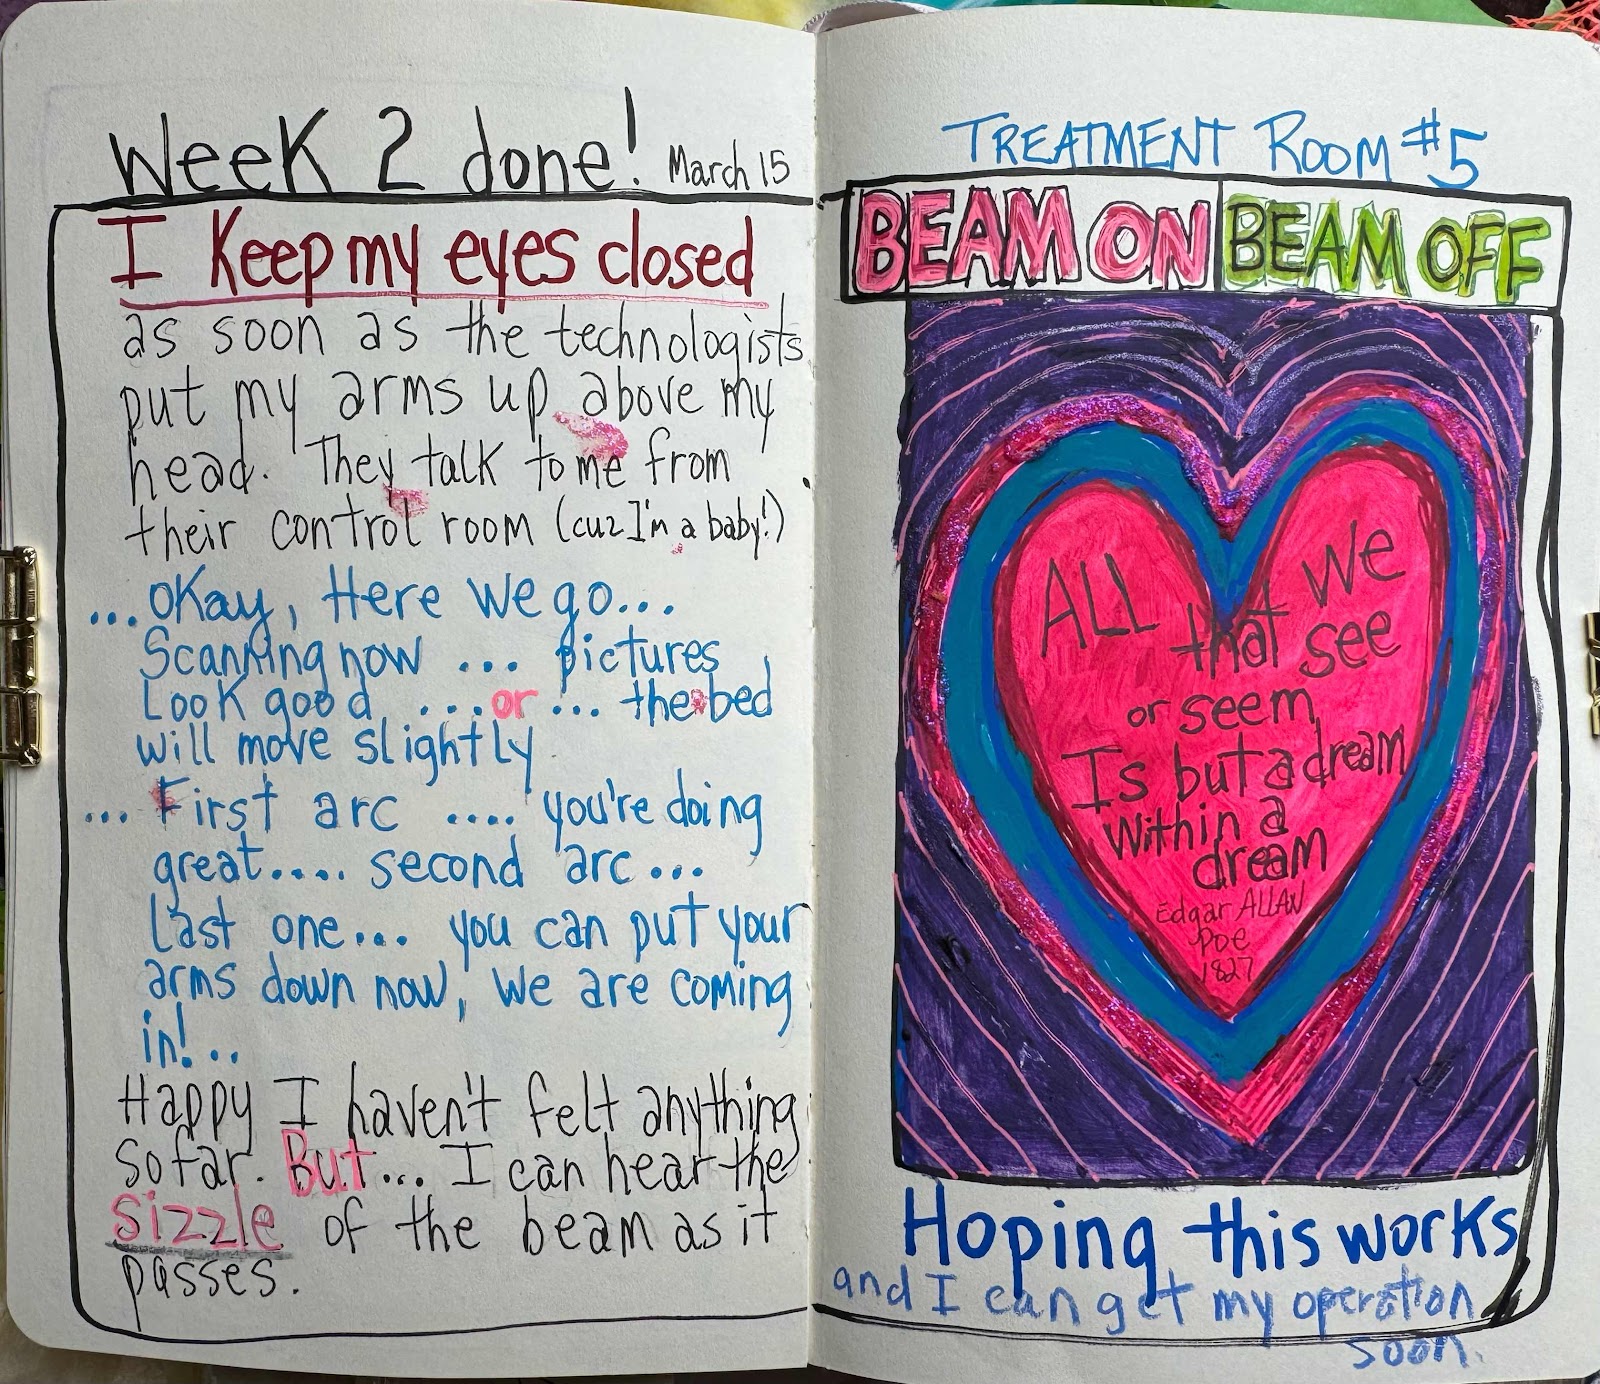 Week 2 done! March 15
I Keep my eyes closed
as soon as the technologists
put my arms up above my
head. They talk to me from
their control room (cuz I'm a baby!)
...okay, Here We go...
Scanning now ... pictures
Look good ....or ... the bed
will move slightly
... First arc .... you're doing
great.... second arc...
Last one... you can put your
arms down now, we are coming
in!..
Happy I haven't felt anything
so far. But... I can hear the
sizzle of the beam as it
passes.
TREATMENT ROOM #5
BEAM ON BEAM OFF
ALL that we
see
or seem,
Is but a dream
Within a
dream
Edgar ALLAN
Poe
1827
Hoping this works
and I can get my operation
soon.